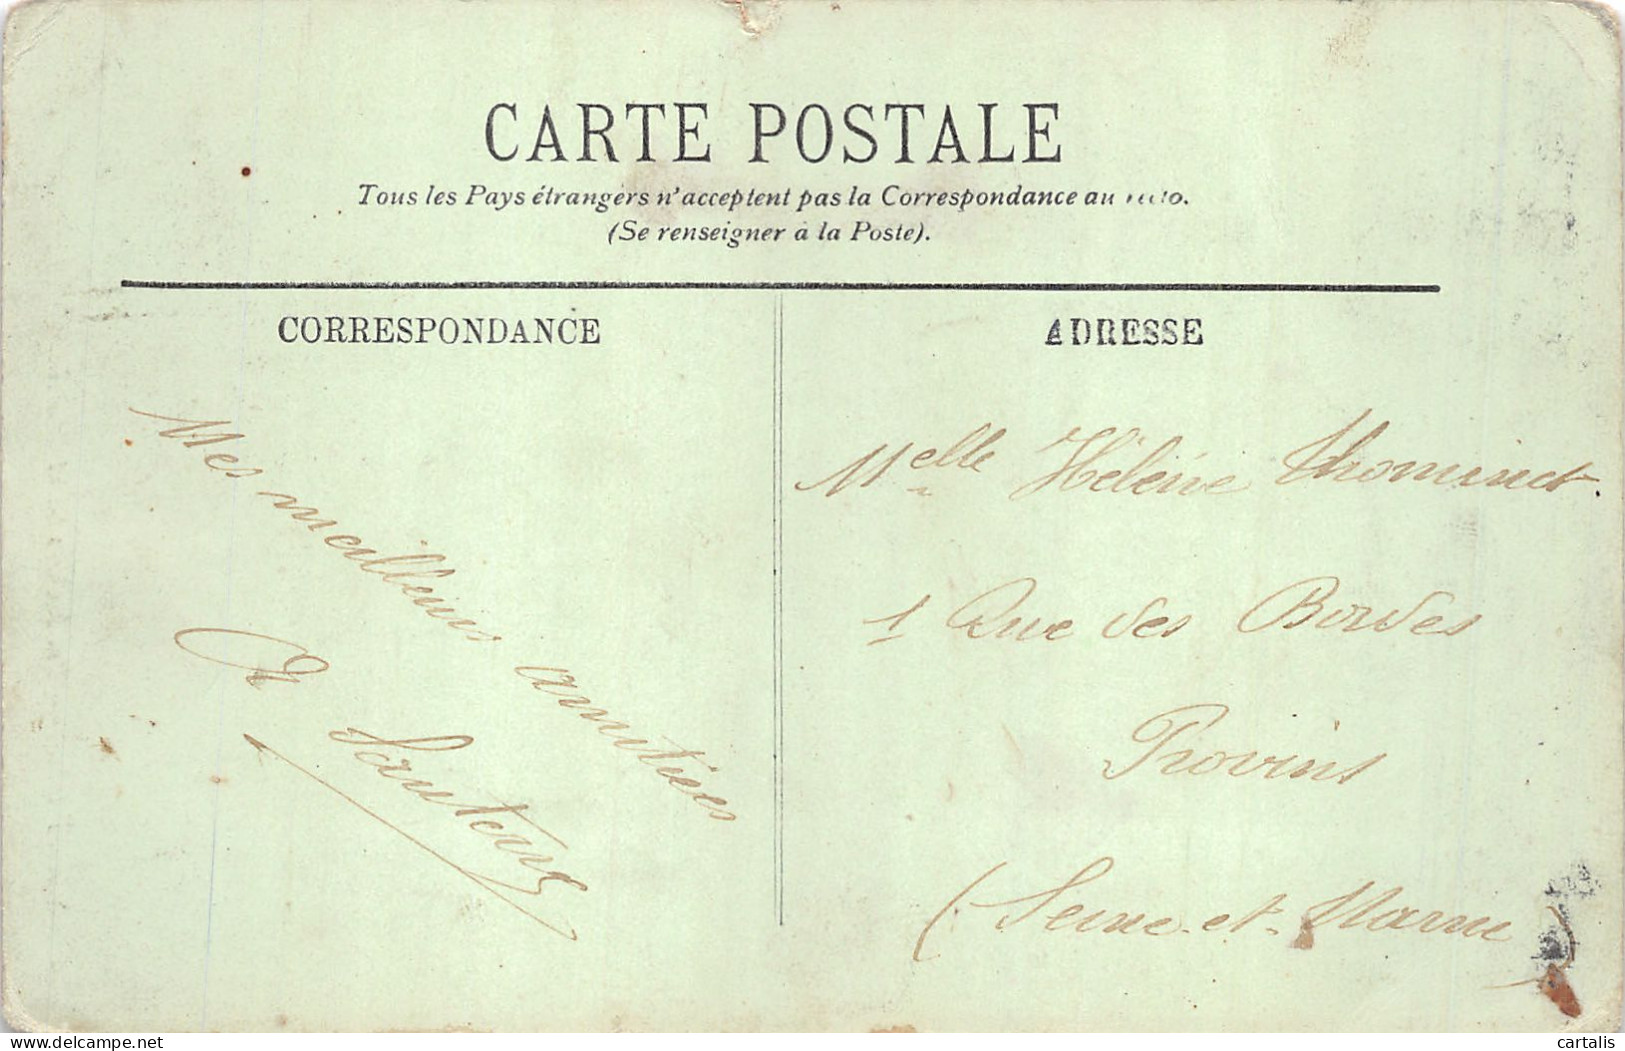 CARTE POSTALE
Tous les Pays étrangers n'acceptent pas la Correspondance au
(Se renseigner à la Poste).
CORRESPONDANCE
ADRESSE
Mes meilleurs amitiées
Melle Hélène Thominet.
1 Rue des Bordes
Provins
(Seine-et-Marne)
cartalis